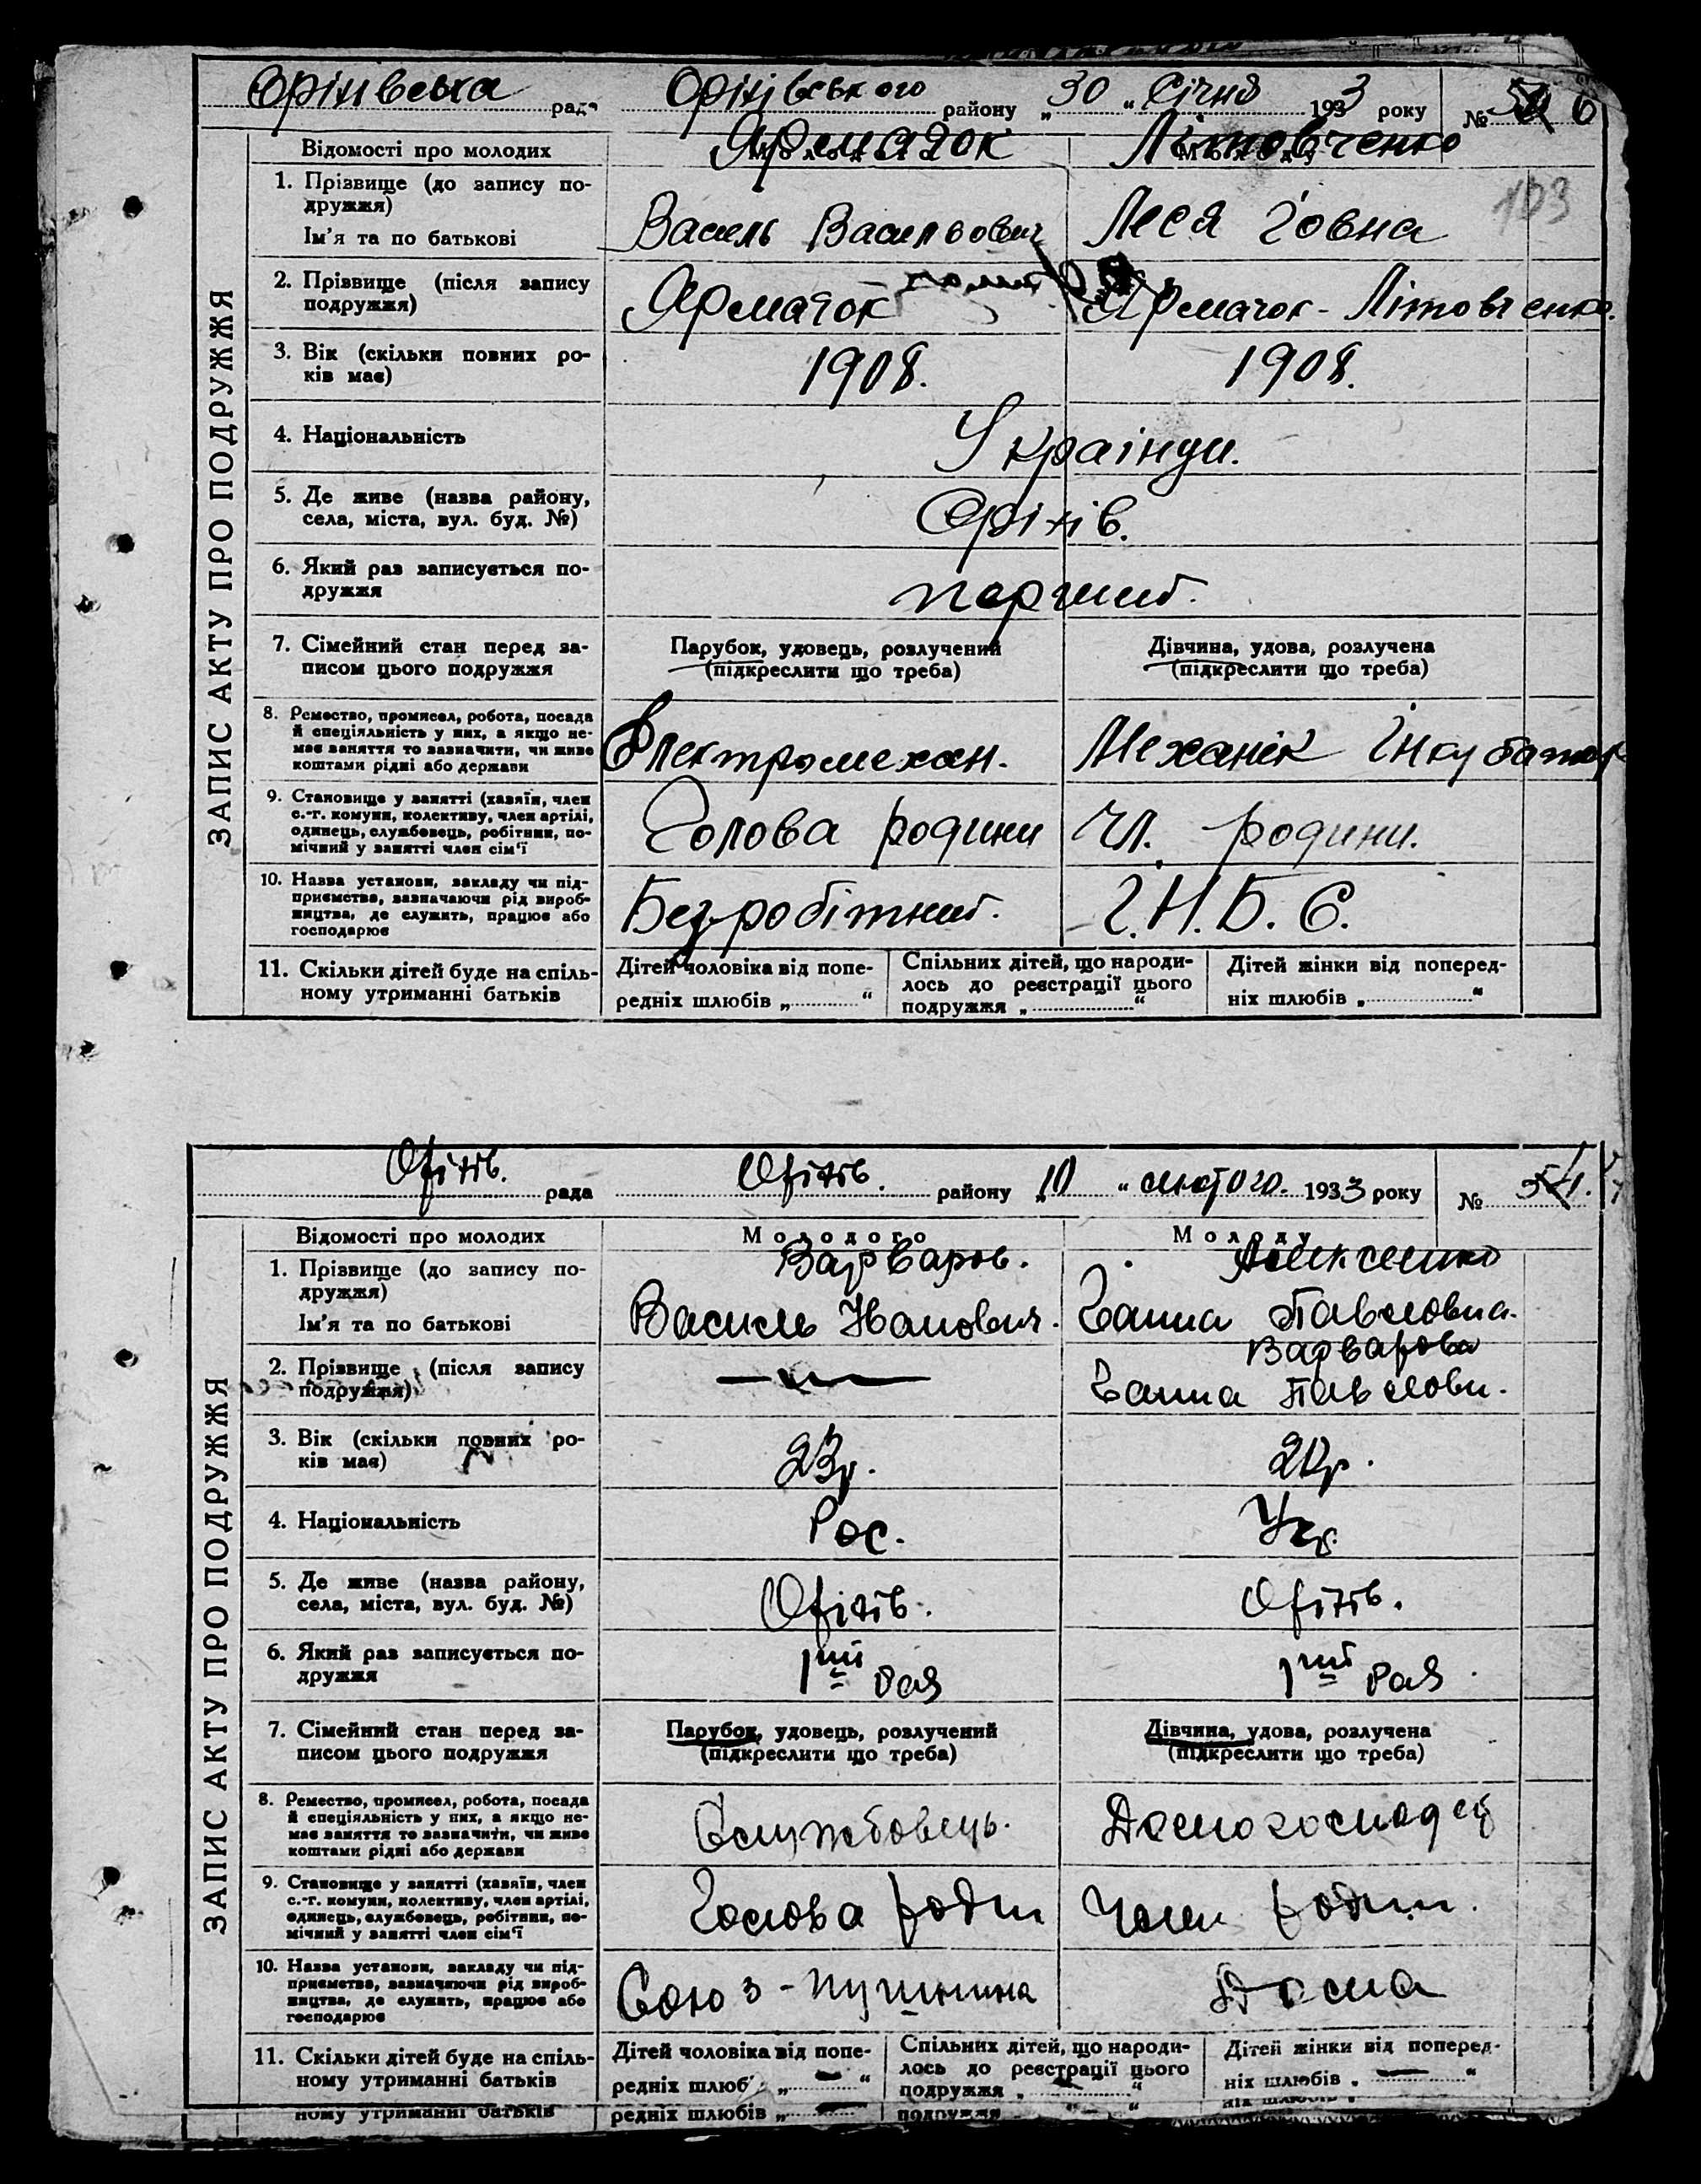 Орінівська рада Орінівського району „30“ Січня 1933 року № 6
Відомості про молодих
Ярмачок Літовченко
103
1. Прізвище (до запису по-
дружжя)
Ім'я та по батькові
Василь Васильович Леся Іовна
2. Прізвище (після запису
подружжя)
Ярмачок Ярмачок-Літовченко.
3. Вік (скільки повних ро-
ків має)
1908. 1908.
4. Національність
Українци.
5. Де живе (назва району,
села, міста, вул. буд. №)
Орінів.
6. Який раз записується по-
дружжя
перший.
7. Сімейний стан перед за-
писом цього подружжя
Парубок, удовець, розлучений
(підкреслити що треба)
Дівчина, удова, розлучена
(підкреслити що треба)
8. Ремество, промисел, робота, посада
й спеціяльність у них, а якщо не-
має заняття то зазначити, чи живе
коштами рідні або держави
Електромехан. Механік Інкубатор
9. Становище у занятті (хазяїн, член
с.-г. комуни, колективу, член артілі,
одинець, службовець, робітник, по-
мічний у занятті член сім'ї
Голова родини Чл. родини.
10. Назва установи, закладу чи під-
приємства, зазначаючи рід вироб-
ництва, де служить, працює або
господарює
Безробітний. І.Н.Б.С.
11. Скільки дітей буде на спіль-
ному утриманні батьків
Дітей чоловіка від попе-
редніх шлюбів „ “
Спільних дітей, що народи-
лось до реєстрації цього
подружжя „ “
Дітей жінки від поперед-
ніх шлюбів „ “
ЗАПИС АКТУ ПРО ПОДРУЖЖЯ
Орінів. рада Орінів. району „10“ лютого. 1933 року №
Відомості про молодих
Молодого Молоду
1. Прізвище (до запису по-
дружжя)
Варваров. Алексенко
Ім'я та по батькові
Василь Іванович. Ганна Павловна.
2. Прізвище (після запису
подружжя)
Варварова
Ганна Павловн.
3. Вік (скільки повних ро-
ків має)
23р. 20р.
4. Національність
Рос. Укр.
5. Де живе (назва району,
села, міста, вул. буд. №)
Орінів. Орінів.
6. Який раз записується по-
дружжя
1ший раз 1ший раз.
7. Сімейний стан перед за-
писом цього подружжя
Парубок, удовець, розлучений
(підкреслити що треба)
Дівчина, удова, розлучена
(підкреслити що треба)
8. Ремество, промисел, робота, посада
й спеціяльність у них, а якщо не-
має заняття то зазначити, чи живе
коштами рідні або держави
Службовець. Домогосподар
9. Становище у занятті (хазяїн, член
с.-г. комуни, колективу, член артілі,
одинець, службовець, робітник, по-
мічний у занятті член сім'ї
Голова родин Член родин.
10. Назва установи, закладу чи під-
приємства, зазначаючи рід вироб-
ництва, де служить, працює або
господарює
Союз-пушнина Дома
11. Скільки дітей буде на спіль-
ному утриманні батьків
Дітей чоловіка від попе-
редніх шлюб „—“
Спільних дітей, що народи-
лось до реєстрації цього
подружжя „—“
Дітей жінки від поперед-
ніх шлюбів „—“
ному утриманні батьків редніх шлюбів „—“ подружжя
ЗАПИС АКТУ ПРО ПОДРУЖЖЯ